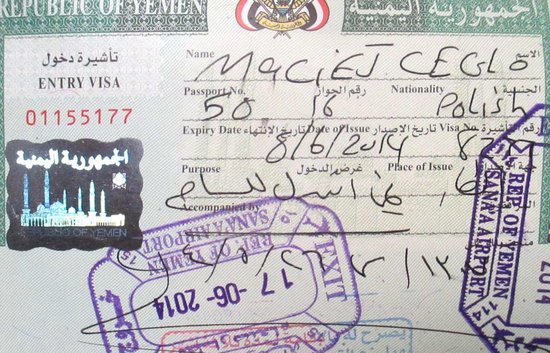 REPUBLIC OF YEMEN الجمهورية اليمنية
تأشيرة دخول
ENTRY VISA
01155177
Name MACIEJ CEGLO الاسم
Passport No. رقم الجواز Nationality الجنسية
50 16 Polish
Expiry Date تاريخ الإنتهاء Date of Issue تاريخ الإصدار Visa No. رقم التأشيرة
8/6/2014
Purpose غرض الدخول Place of Issue
Accompanied by
الجمهورية اليمنية
OF YEMEN
EXIT
REP. OF YEMEN
SANAA AIRPORT
17-06-2014
15
REP. OF YEMEN
SANAA AIRPORT
114
2014
يصرح له